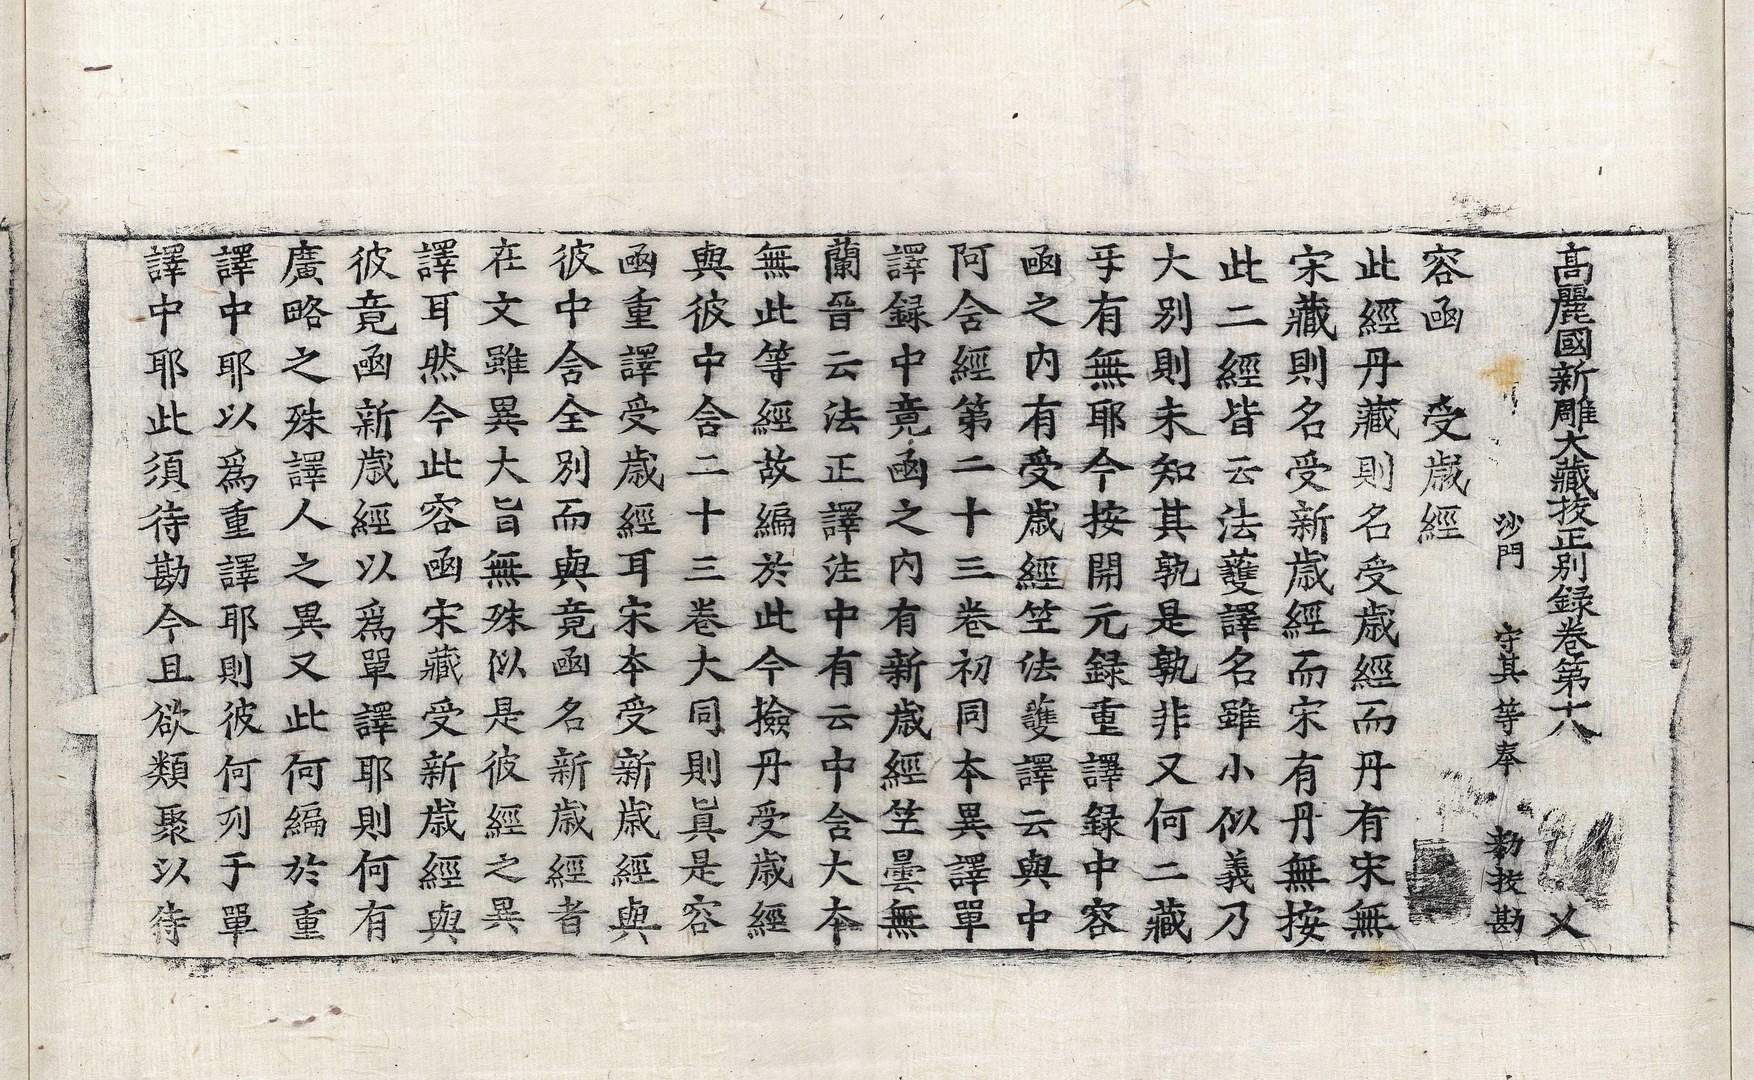 高麗國新雕大藏挍正別録卷第十八 乂
沙門 守其等奉 勅挍勘
容函 受歲經
此經丹藏則名受歲經而丹有宋無
宋藏則名受新歲經而宋有丹無按
此二經皆云法護譯名雖小似義乃
大別則未知其孰是孰非又何二藏
乎有無耶今按開元録重譯録中容
函之内有受歲經竺法護譯云與中
阿含經第二十三卷初同本異譯單
譯録中竟函之内有新歲經竺曇無
蘭晉云法正譯注中有云中含大本
無此等經故編於此今撿丹受歲經
與彼中含二十三卷大同則眞是容
函重譯受歲經耳宋本受新歲經與
彼中含全別而與竟函名新歲經者
在文雖異大旨無殊似是彼經之異
譯耳然今此容函宋藏受新歲經與
彼竟函新歲經以爲單譯耶則何有
廣略之殊譯人之異又此何編於重
譯中耶以爲重譯耶則彼何列于單
譯中耶此須待勘今且欲類聚以待